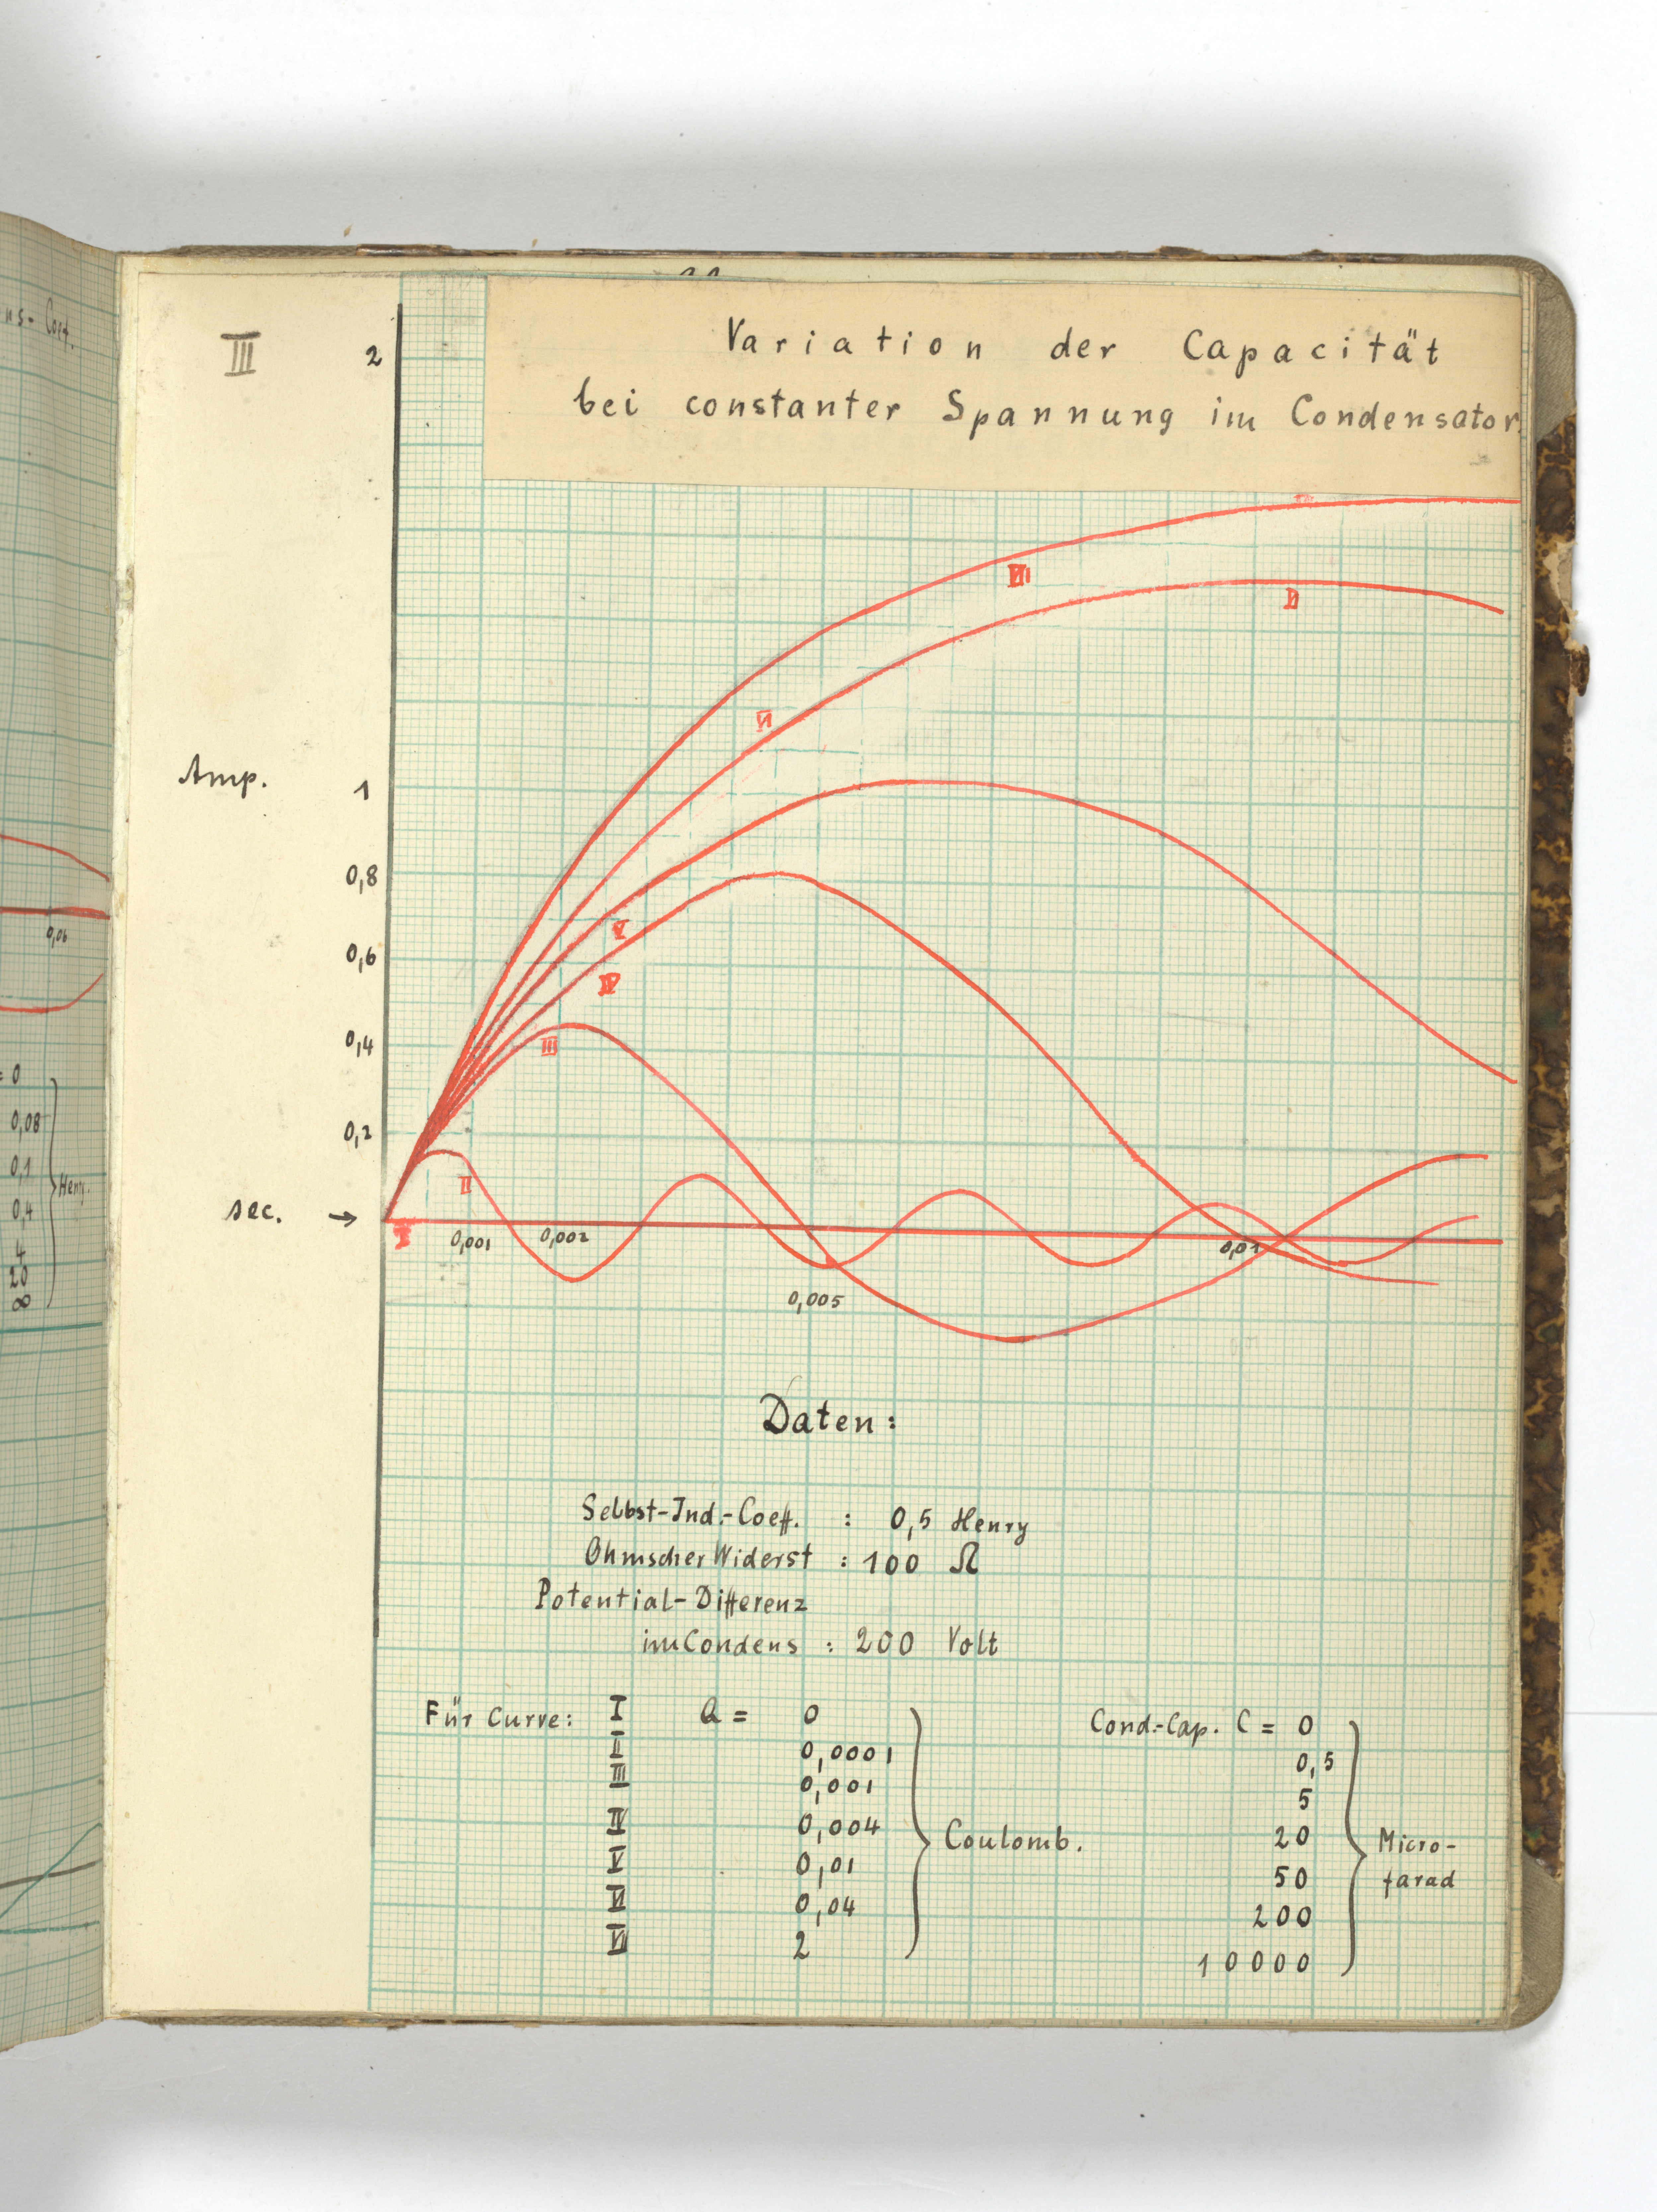 III
2
Variation der Capacität
bei constanter Spannung im Condensator.
VII
VI
VI
Amp.
1
0,8
V
0,6
IV
0,4
III
0,2
II
sec. →
I
0,001
0,002
0,01
0,005
Daten:
Selbst-Ind.-Coeff. : 0,5 Henry
Ohmscher Widerst : 100 Ω
Potential-Differenz
im Condens : 200 Volt
Für Curve: I Q = 0 Cond.-Cap. C = 0
II 0,0001 0,5
III 0,001 5
IV 0,004 Coulomb. 20 Micro-
V 0,01 50 farad
VI 0,04 200
VII 2 10000
0,06
= 0
0,08
0,1
Henry.
0,4
4
20
∞